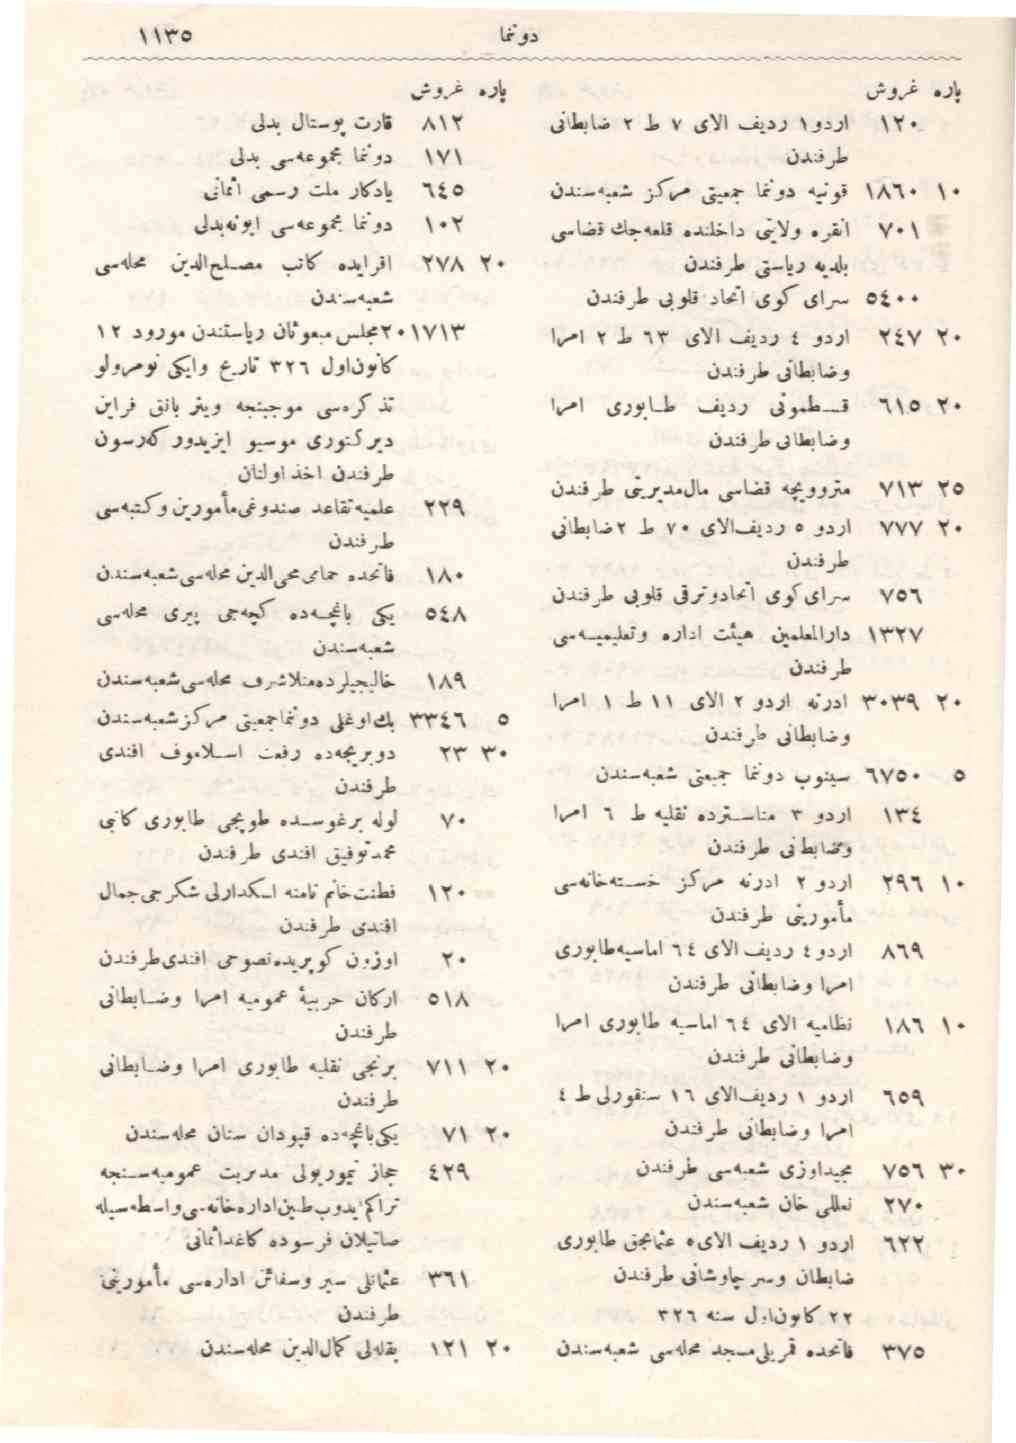 دوننما ١١٣٥
پاره غروش
١٢٠ اردو ١ رديف الاى ٧ ط ٢ ضابطانى
طرفندن
١٠ ١٨٦٠ قونيه دوننما جمعيتى مركز شعبه‌سندن
٧٠١ انقره ولايتى داخلنده قلعه‌جك قضاسى
بلديه رياستى طرفندن
٥٤٠٠ سراى كوى اتحاد قلوبى طرفندن
٢٠ ٢٤٧ اردو ٤ رديف الاى ٦٣ ط ٢ امرا
وضابطانى طرفندن
٢٠ ٦١٥ قسطمونى رديف طابورى امرا
وضابطانى طرفندن
٢٥ ٧١٣ متروويچه قضاسى مال‌مديريتى طرفندن
٢٠ ٧٧٧ اردو ٥ رديف‌الاى ٧٠ ط ٢ ضابطانى
طرفندن
٧٥٦ سراى‌كوى اتحادوترقى قلوبى طرفندن
١٣٢٧ دارالمعلمين هيئت اداره وتعليميه‌سى
طرفندن
٢٠ ٣٠٣٩ ادرنه اردو ٢ الاى ١١ ط ١ امرا
وضابطانى طرفندن
٥ ٦٧٥٠ سينوب دوننما جمعيتى شعبه‌سندن
١٣٤ اردو ٣ مناسترده نقليه ط ٦ امرا
وضابطانى طرفندن
١٠ ٢٩٦ اردو ٢ ادرنه مركز خسته‌خانه‌سى
مأمورينى طرفندن
٨٦٩ اردو ٤ رديف الاى ٦٤ اماسيه‌طابورى
امرا وضابطانى طرفندن
١٠ ١٨٦ نظاميه الاى ٦٤ اماسيه طابورى امرا
وضابطانى طرفندن
٦٥٩ اردو ١ رديف‌الاى ١٦ سنقورلى ط ٤
امرا وضابطانى طرفندن
٣٠ ٧٥٦ مجيداوزى شعبه‌سى طرفندن
٢٧٠ نعللى خان شعبه‌سندن
٦٢٢ اردو ١ رديف الاى ٥ عثمانجق طابورى
ضابطان وسر چاوشانى طرفندن
٢٢ كانون‌اول سنه ٣٢٦
٣٧٥ فاتحده قمريلى‌مسجد محله‌سى شعبه‌سندن
پاره غروش
٨١٢ قارت پوستال بدلى
١٧١ دوننما مجموعه‌سى بدلى
٦٤٥ يادكار ملت رسمى اثمانى
١٠٢ دوننما مجموعه‌سى ابونه‌بدلى
٢٠ ٢٧٨ اقرايده كاتب مصلح‌الدين محله‌سى
شعبه‌سندن
٢٠١٧١٣ مجلس مبعوثان رياستندن مورود ١٢
كانون‌اول ٣٢٦ تاريخ وايكى نومرولو
تذكره‌سى موجبنجه وينر بانق فراين
ديركتورى موسيو ايزيدور كه‌رسون
طرفندن اخذ اولنان
٢٢٩ علميه‌تقاعد صندوغى‌مأمورين وكتبه‌سى
طرفندن
١٨٠ فاتحده حمامى‌محى‌الدين محله‌سى‌شعبه‌سندن
٥٤٨ يكى باغچه‌ده كچه‌جى پيرى محله‌سى
شعبه‌سندن
١٨٩ خاليجيلرده‌منلاشرف محله‌سى‌شعبه‌سندن
٥ ٣٣٤٦ بك‌اوغلى دوننماجمعيتى مركزشعبه‌سندن
٣٠ ٢٣ دوبريجه‌ده رفعت اسلاموف افندى
طرفندن
٧٠ لوله برغوسده طوپجى طابورى كاتبى
محمدتوفيق افندى طرفندن
١٢٠ فطنت‌خانم نامنه اسكدارلى شكرجى‌جمال
افندى طرفندن
٢٠ اوزون كوپريده‌نصوحى افندى‌طرفندن
٥١٨ اركان حربيۀ عموميه امرا وضابطانى
طرفندن
٢٠ ٧١١ برنجى نقليه طابورى امرا وضابطانى
طرفندن
٢٠ ٧١ يكى‌باغچه‌ده قپودان سنان محله‌سندن
٤٢٩ حجاز تيموريولى مديريت عموميه‌سنجه
تراكم‌ايدوب‌طين‌اداره‌خانه‌سى‌واسطه‌سيله
صاتيلان فرسوده كاغداثمانى
٣٦١ عثمانلى سير وسفائن اداره‌سى مأمورينى
طرفندن
٢٠ ١٢١ بقله‌لى كمال‌الدين محله‌سندن